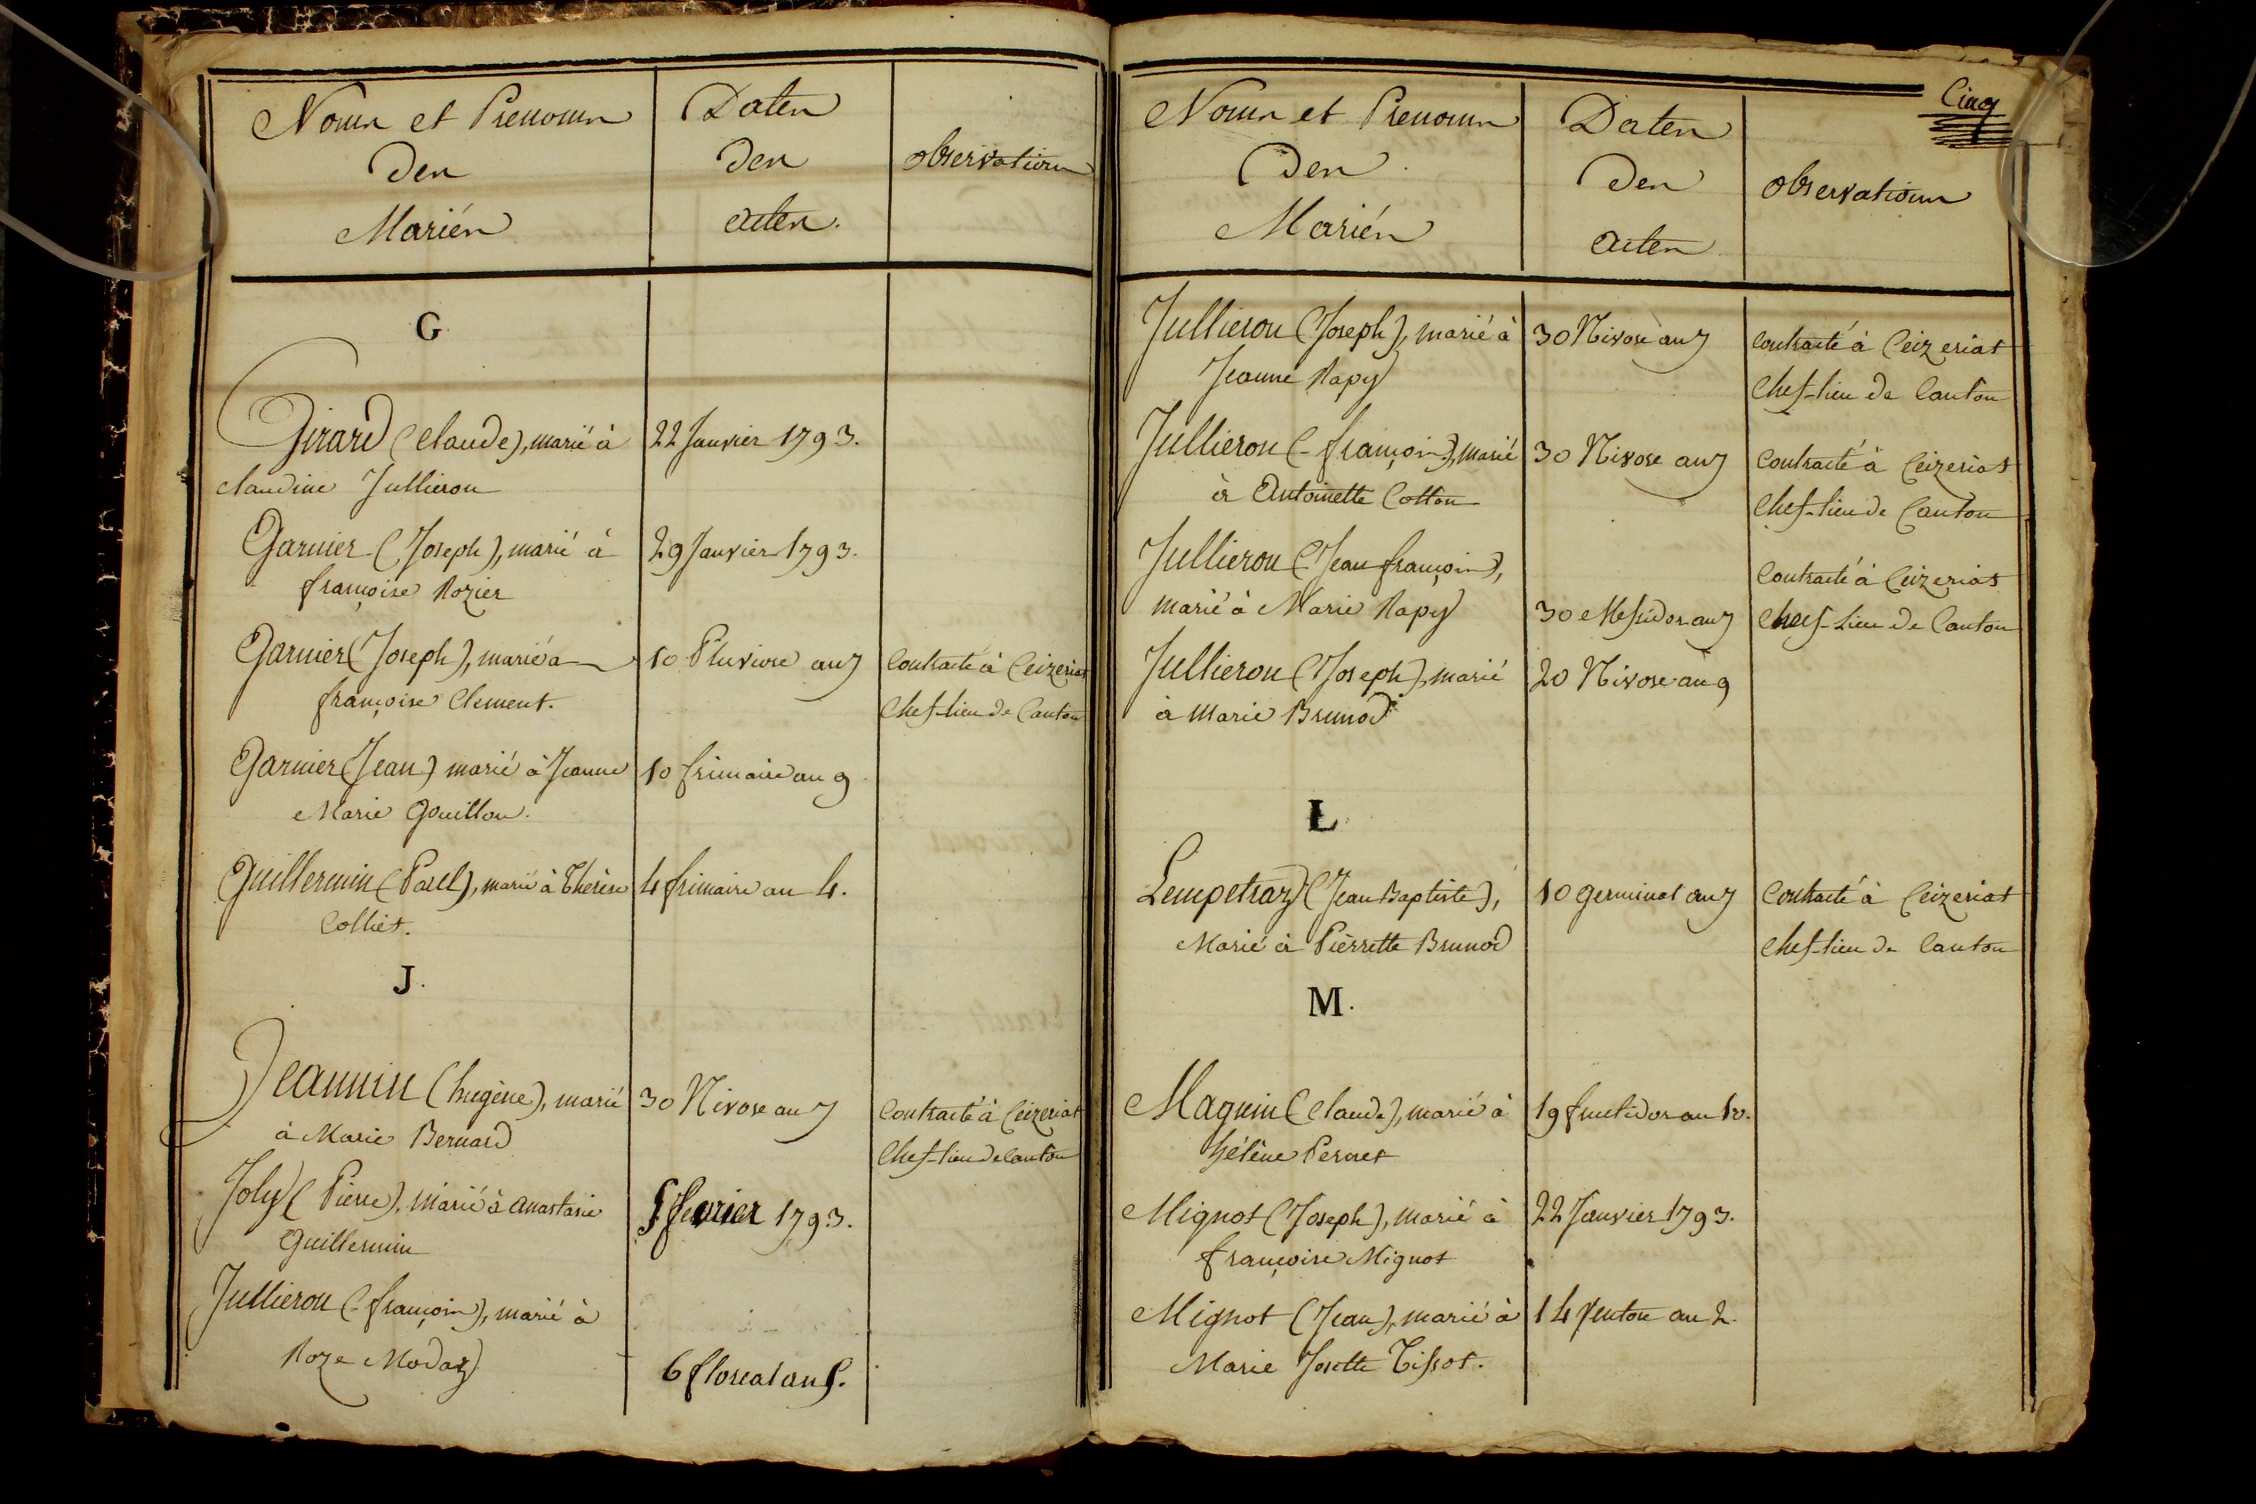 Noms et Prenoms
des
Mariés
Dates
des
actes.
observations
G
Girard (Claude), marié à
claudine Jullieron
22 Janvier 1793.
Garnier (Joseph), marié à
françoise Rozier
29 Janvier 1793.
Garnier (Joseph), marié à
françoise Clement.
10 Pluviose an 7
Contracté à Ceizeriat
Chef-lieu de Canton
Garnier (Jean) marié à Jeanne
Marie Gouillon.
10 frimaire an 9
Guillermin (Paul), marié à Therèse
Colliet.
4 frimaire an 4.
J.
Jeannin (hugène), marié
à Marie Bernard
30 Nivose an 7
Contracté à Ceizeriat
Chef-lieu de Canton
Joly (Pierre), marié à anastasie
Guillermin
5 fevrier 1793.
Jullieron (françois), marié à
Roze Modaz
6 floreal an 5.
Cinq
Noms et Prenoms
Des
Mariés
Dates
des
actes
observations
Jullieron (Joseph), marié à
Jeanne Rapy
30 Nivose an 7
contracté à Ceizeriat
Chef-lieu de Canton
Jullieron (françois), marié
à Antoinette Cotton
30 Nivose an 7
Contracté à Ceizeriat
Chef-lieu de Canton
Jullieron (Jean françois),
marié à Marie Rapy
30 Messidor an 7
Contracté à Ceizeriat
Chef-lieu de Canton
Jullieron (Joseph), marié
à Marie Brunod
20 Nivose an 9
L
Lempetraz (Jean Baptiste),
Marié à Pièrrette Brunod
10 germinal an 7
Contracté à Ceizeriat
chef-lieu de Canton
M.
Magnin (Claude), marié à
hélène Pernet
19 fructidor an 10.
Mignot (Joseph), marié à
françoise Mignot
22 Janvier 1793.
Mignot (Jean), marié à
Marie Josette Tissot.
14 Ventose an 2.